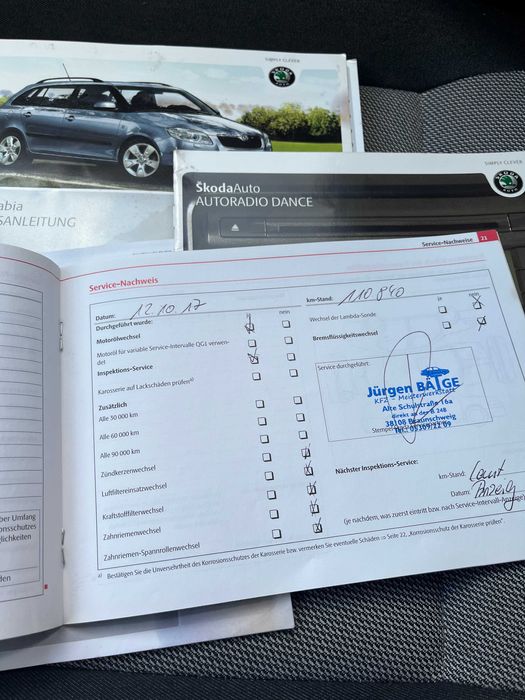 SIMPLY CLEVER
SIMPLY CLEVER
ŠkodaAuto
AUTORADIO DANCE
abia
SANLEITUNG
Service-Nachweise 21
Service-Nachweis
Datum: 12.10.17
km-Stand: 110 840
Durchgeführt wurde:
ja nein
ja nein
Motorölwechsel
Wechsel der Lambda-Sonde
Motoröl für variable Service-Intervalle QG1 verwen-
det
Bremsflüssigkeitswechsel
Inspektions-Service
Karosserie auf Lackschäden prüfen a)
Service durchgeführt:
Zusätzlich
Alle 30 000 km
Alle 60 000 km
Alle 90 000 km
Jürgen BÄTGE
KFZ - Meisterwerkstatt
Alte Schulstraße 16a
direkt an der B 248
38108 Braunschweig
Zündkerzenwechsel
Luftfiltereinsatzwechsel
Kraftstofffilterwechsel
Zahnriemenwechsel
Zahnriemen-Spannrollenwechsel
Nächster Inspektions-Service:
km-Stand: Laut
Datum: Anzeig
(je nachdem, was zuerst eintritt bzw. nach Service-Intervall-Anzeige)
a) Bestätigen Sie die Unversehrtheit des Korrosionsschutzes der Karosserie bzw. vermerken Sie eventuelle Schäden ⇒ Seite 22, „Korrosionsschutz der Karosserie prüfen".
ber Umfang
onsschutzes
glichkeiten
den